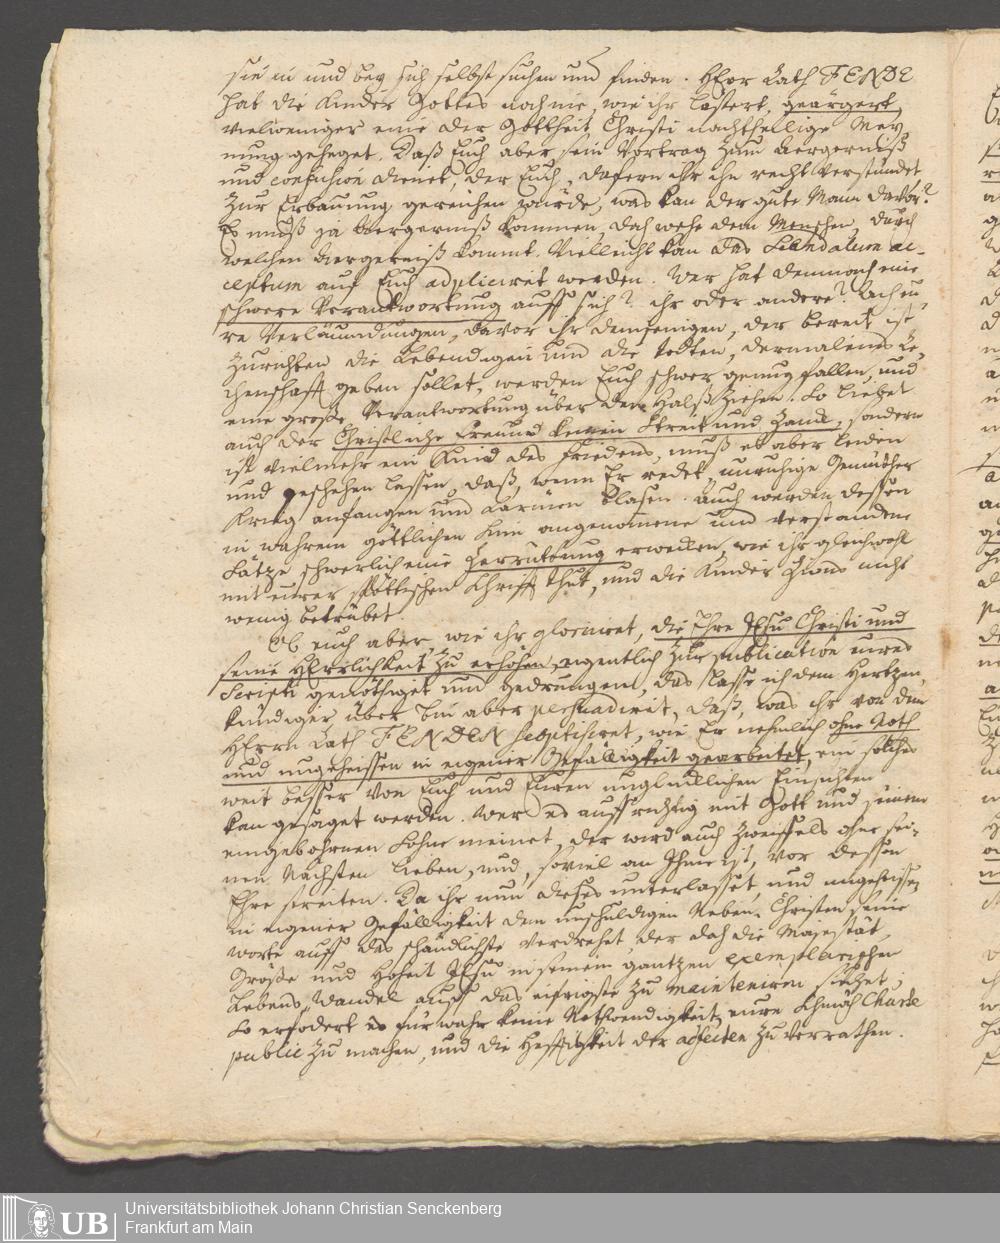 sie in und bey sich selbst suchen und finden. HErr Rath FENDE
hat die Kinder Gottes noch nie, wie ihr lästert, geärgert,
vielweniger eine der Gottheit Christi nachtheilige Mey-
nung geheget. Daß Euch aber sein Vortrag zum Aergerniß
und confusion dienet, der Euch, dafern ihr ihn recht verstündet
zur Erbauung gereichen würde, was kan der gute Mann davor?
Es muß ja Aergerniß kommen, doch wehe dem Menschen, durch
welchen Aergerniß kommt. Vielleicht kan das Scandalum ac-
ceptum auf Euch adpliciret werden. Wer hat demnach eine
schwere Verantwortung auff sich? ihr oder andere? Ach eu-
re Verläumdungen, davor ihr demjenigen, der bereit ist
zurichten die Lebendigen und die todten, dermaleins Re-
chenschafft geben sollet, werden Euch schwer genug fallen, und
eine große Verantwortung über den Halß ziehen. So liebet
auch der Christliche Freund keinen Streit und Zanck, sondern
ist vielmehr ein Kind des Friedens, muß es aber leiden
und geschehen lassen, daß, wenn Er redet, unruhige Gemüther
Krieg anfangen und Larmen blasen. Auch werden dessen
in wahrem göttlichen Sinn angenommene und verstandene
Sätze schwerlich eine Zerrüttung erwecken, wie ihr gleichwohl
mit eurer spöttischen Schrifft thut, und die Kinder Zions nicht
wenig betrübet.
Ob euch aber, wie ihr glorniret, die Ehre JEsu Christi und
seine HErrlichkeit zu erhöhen, eigentlich zur publication eures
Scripti genöthiget und gedrungen, das lasse ich dem Hertzens
kündiger über, bin aber persuadiret, daß, was ihr von dem
HErrn Rath FENDEN scoptisiret, wie Er nehmlich ohne Noth
und ungeheissen in eigener Gefälligkeit gearbeitet, ein solches
weit besser von Euch und Euren unglücklichen Einsichten
kan gesaget werden. Wer es auffrichtig mit Gott und seinem
eingebohrnen Sohne meinet, der wird auch zweiffels ohne sei-
nen Nächsten lieben, und, soviel an Ihme ist, vor dessen
Ehre streiten. Da ihr nun dieses unterlasset, und ungeheissen
in eigener Gefälligkeit dem unschuldigen Neben-Christen seine
worte auffs schändlichste verdrehet, der doch die Majestät,
Größe und Hoheit JEsu in seinem gantzen exemplarischen
Lebens-Wandel auff das eifrigste zu mainteniren suchet;
So erfodert es fürwahr keine Nothwendigkeit, eure Schmäh Charte
public zu machen, und die Hefftigkeit der affecten zu verrathen.
Universitätsbibliothek Johann Christian Senckenberg
Frankfurt am Main
UB